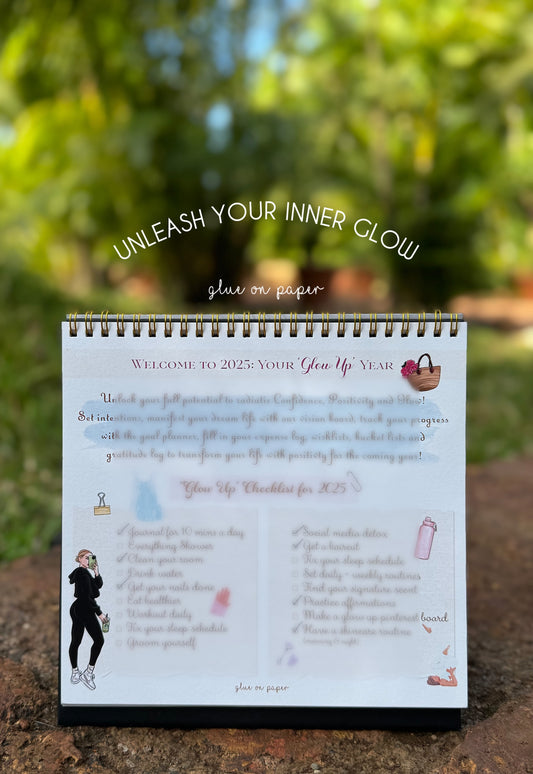 UNLEASH YOUR INNER GLOW
glue on paper
WELCOME TO 2025: YOUR 'Glow Up' YEAR
Unlock your full potential to radiate Confidence, Positivity and Glow!
Set intentions, manifest your dream life with our vision board, track your progress
with the goal planner, fill in your expense log, wishlists, bucket lists and
gratitude log to transform your life with positivity for the coming year!
"Glow Up" Checklist for 2025
Journal for 10 mins a day
Everything Shower
Clean your room
Drink water
Get your nails done
Eat healthier
Workout daily
Fix your sleep schedule
Groom yourself
Social media detox
Get a haircut
Fix your sleep schedule
Set daily - weekly routines
Find your signature scent
Practice affirmations
Make a glow up pinterest board
Have a skincare routine
(morning & night)
glue on paper